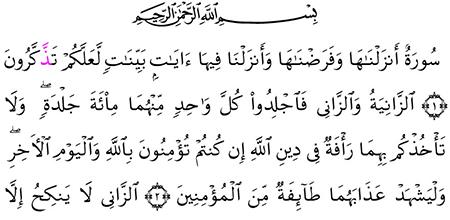 بِسْمِ اللَّهِ الرَّحْمَٰنِ الرَّحِيمِ
سُورَةٌ أَنزَلْنَٰهَا وَفَرَضْنَٰهَا وَأَنزَلْنَا فِيهَا ءَايَٰتٍۭ بَيِّنَٰتٍ لَّعَلَّكُمْ تَذَّكَّرُونَ
﴿١﴾ الزَّانِيَةُ وَالزَّانِى فَاجْلِدُوا۟ كُلَّ وَٰحِدٍ مِّنْهُمَا مِا۟ئَةَ جَلْدَةٍ ۖ وَلَا
تَأْخُذْكُم بِهِمَا رَأْفَةٌ فِى دِينِ اللَّهِ إِن كُنتُمْ تُؤْمِنُونَ بِاللَّهِ وَالْيَوْمِ الْأَخِرِ ۖ
وَلْيَشْهَدْ عَذَابَهُمَا طَآئِفَةٌ مِّنَ الْمُؤْمِنِينَ ﴿٢﴾ الزَّانِى لَا يَنكِحُ إِلَّا